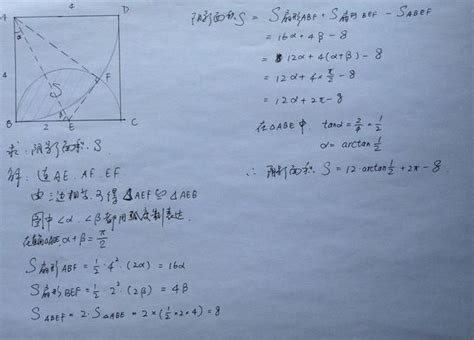 A
4
D
α
4
F
S
β
B
2
E
C
求：阴影面积 S
解：连 AE、AF、EF
由三边相等，可得 △AEF≌△AEB
图中∠α、∠β都用弧度制表达
在直角△ABE, α+β=π/2
S扇形ABF = 1/2·4²·(2α) = 16α
S扇形BEF = 1/2·2²·(2β) = 4β
S ABEF = 2·S△ABE = 2×(1/2×2×4) = 8
阴影面积 S = S扇形ABF + S扇形BEF − SABEF
= 16α + 4β − 8
= 12α + 4(α+β) − 8
= 12α + 4×π/2 − 8
= 12α + 2π − 8
在△ABE中, tanα = 2/4 = 1/2
α = arctan 1/2
∴ 阴影面积 S = 12·arctan 1/2 + 2π − 8